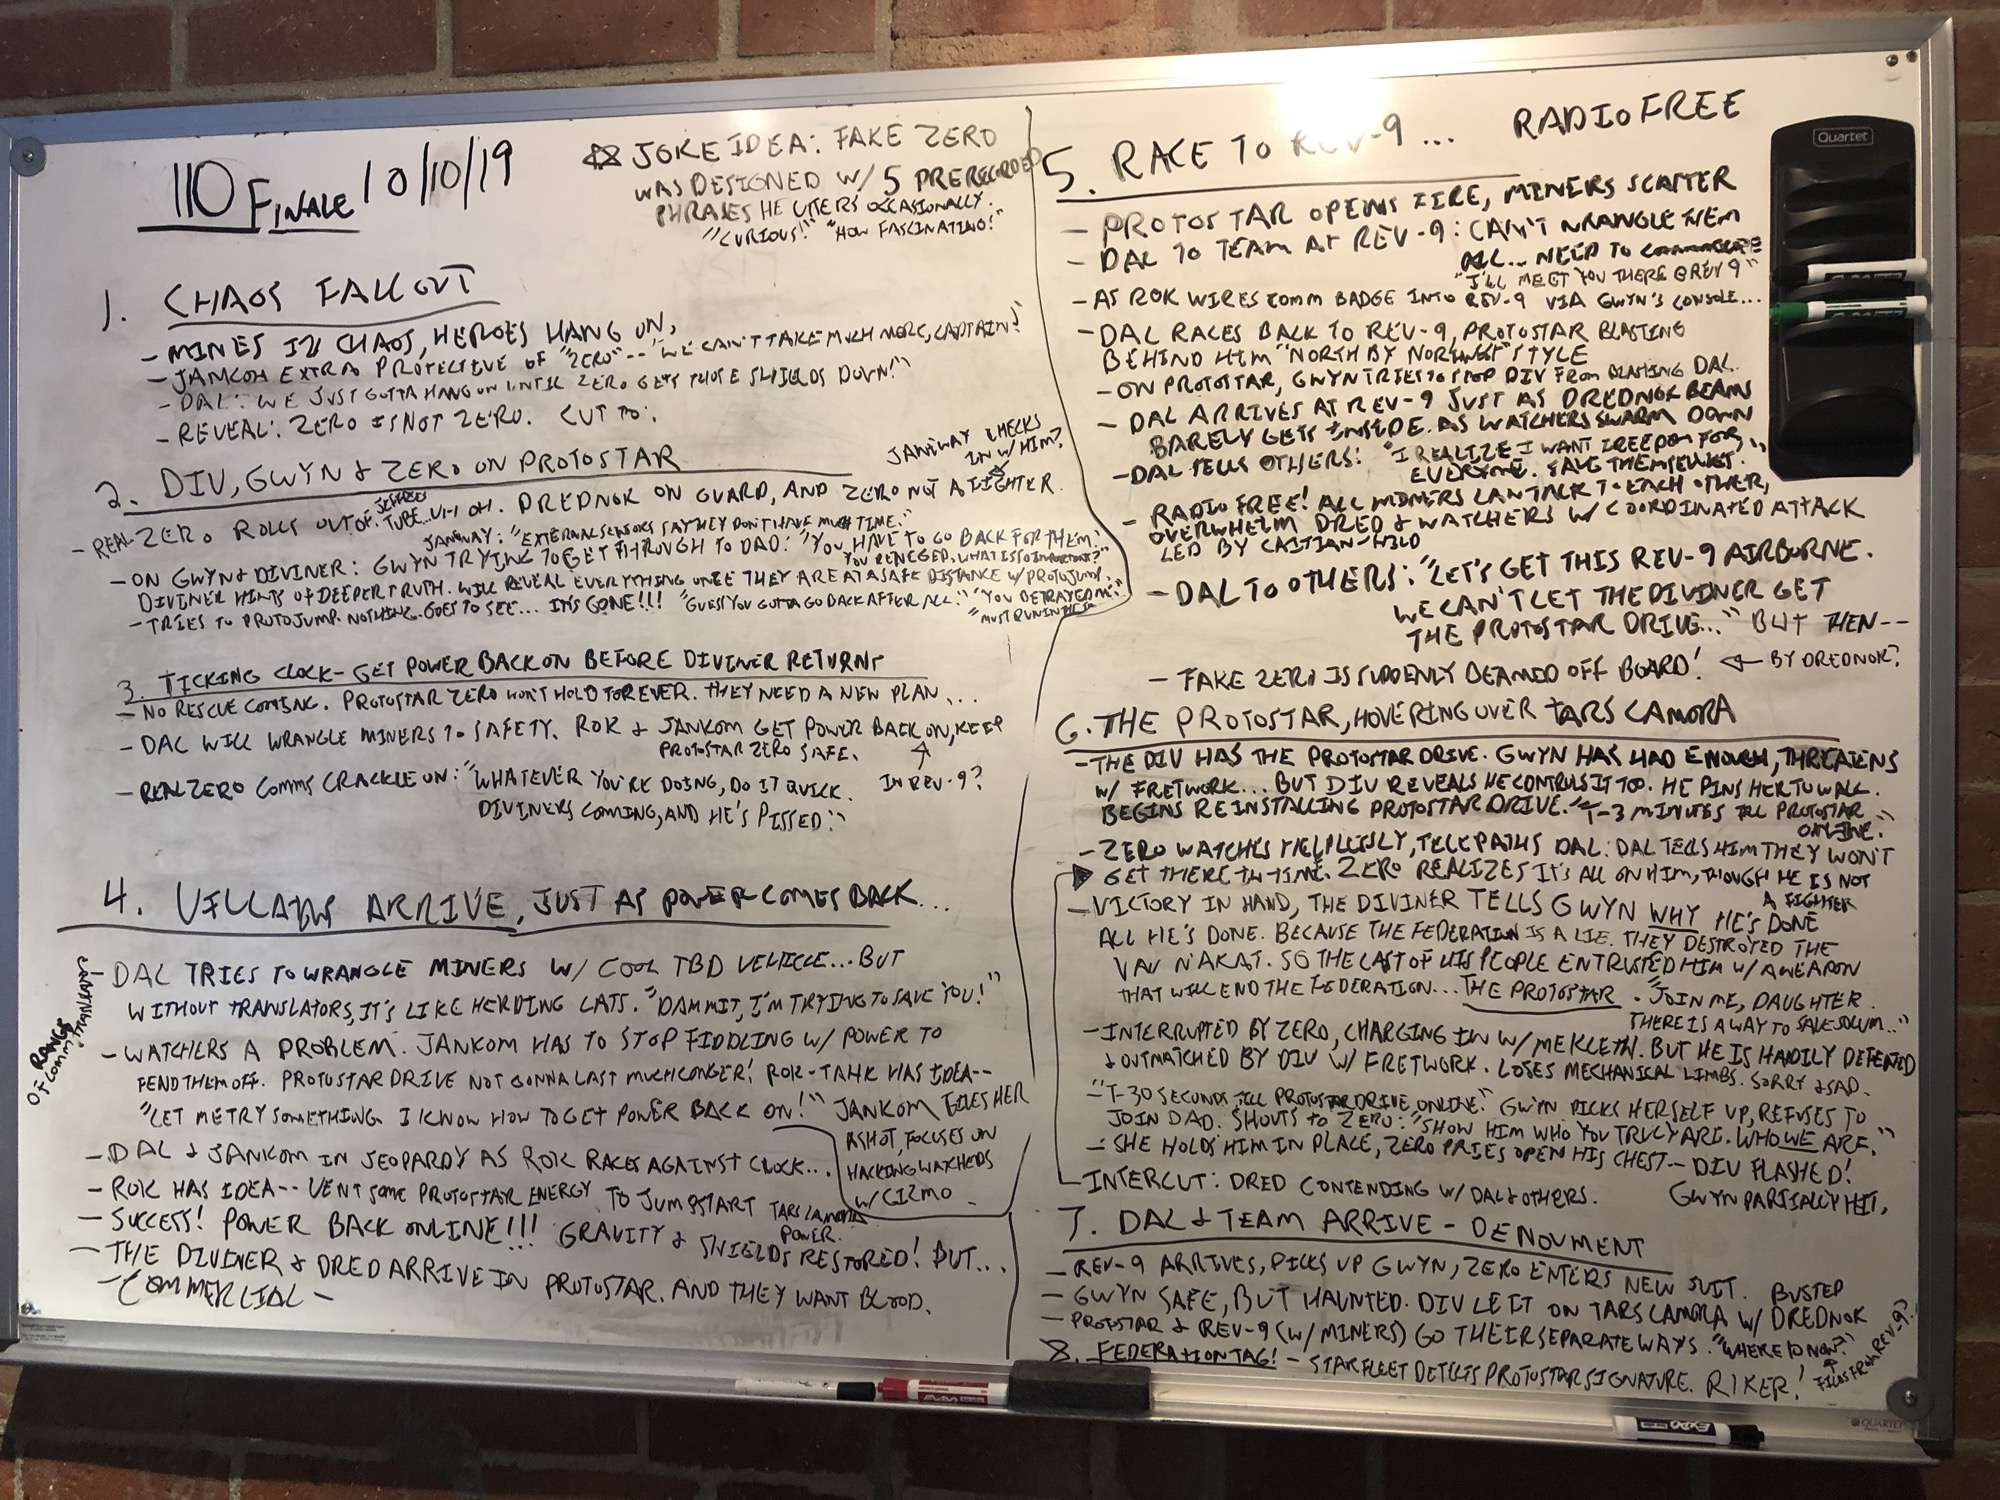 110 FINALE 10/10/19
☆ JOKE IDEA: FAKE ZERO
WAS DESIGNED W/ 5 PRERECORDED
PHRASES HE UTTERS OCCASIONALLY.
"CURIOUS!" "HOW FASCINATING!"
1. CHAOS FALLOUT
- MINES IN CHAOS, HEROES HANG ON,
- JANKOM EXTRA PROTECTIVE OF "ZERO" -- "WE CAN'T TAKE MUCH MORE, CAPTAIN!"
- DAL: WE JUST GOTTA HANG ON UNTIL ZERO GETS THOSE SHIELDS DOWN!"
- REVEAL: ZERO IS NOT ZERO. CUT TO:
2. DIV, GWYN & ZERO ON PROTOSTAR
JANEWAY CHECKS
IN W/ HIM?
- REAL ZERO ROLLS OUT OF JEFFRIES TUBE... UH OH. DREDNOK ON GUARD, AND ZERO NOT A FIGHTER.
JANEWAY: "EXTERNAL SENSORS SAY THEY DON'T HAVE MUCH TIME."
- ON GWYN & DIVINER: GWYN TRYING TO GET THROUGH TO DAD: "YOU HAVE TO GO BACK FOR THEM.
YOU RENEGED, WHAT IS SO IMPORTANT?"
DIVINER HINTS OF DEEPER TRUTH. WILL REVEAL EVERYTHING ONCE THEY ARE AT A SAFE DISTANCE W/ PROTOJUMP.
- TRIES TO PROTOJUMP. NOTHING. GOES TO SEE... IT'S GONE!!! "GUESS YOU GOTTA GO BACK AFTER ALL." "YOU BETRAYED ME."
"MUST RUN IN THE
3. TICKING CLOCK - GET POWER BACK ON BEFORE DIVINER RETURNS
- NO RESCUE COMING. PROTOSTAR ZERO WON'T HOLD FOREVER. THEY NEED A NEW PLAN...
- DAL WILL WRANGLE MINERS TO SAFETY. ROK & JANKOM GET POWER BACK ON, KEEP
PROTOSTAR ZERO SAFE.
IN REV-9?
- REAL ZERO COMMS CRACKLE ON: "WHATEVER YOU'RE DOING, DO IT QUICK.
DIVINERS COMING, AND HE'S PISSED!"
4. VILLAINS ARRIVE, JUST AS POWER COMES BACK...
- DAL TRIES TO WRANGLE MINERS W/ COOL TBD VEHICLE... BUT
WITHOUT TRANSLATORS, IT'S LIKE HERDING CATS. "DAMMIT, I'M TRYING TO SAVE YOU!"
OUT OF RANGE
OF COMM TRANSLATOR
- WATCHERS A PROBLEM. JANKOM HAS TO STOP FIDDLING W/ POWER TO
FEND THEM OFF. PROTOSTAR DRIVE NOT GONNA LAST MUCH LONGER! ROK-TAHK HAS IDEA --
"LET ME TRY SOMETHING. I KNOW HOW TO GET POWER BACK ON!" JANKOM GIVES HER
A SHOT, FOCUSES ON
HACKING WATCHERS
W/ GIZMO.
- DAL & JANKOM IN JEOPARDY AS ROK RACES AGAINST CLOCK...
- ROK HAS IDEA -- VENT SOME PROTOSTAR ENERGY TO JUMPSTART TARS LAMORA
POWER.
- SUCCESS! POWER BACK ONLINE!!! GRAVITY & SHIELDS RESTORED! BUT...
- THE DIVINER & DRED ARRIVE IN PROTOSTAR. AND THEY WANT BLOOD.
- COMMERCIAL -
5. RACE TO REV-9... RADIO FREE
- PROTOSTAR OPENS FIRE, MINERS SCATTER
- DAL TO TEAM AT REV-9: CAN'T WRANGLE THEM
ALL... NEED TO COMMUNICATE
"I'LL MEET YOU THERE @ REV 9"
- AS ROK WIRES COMM BADGE INTO REV-9 VIA GWYN'S CONSOLE...
- DAL RACES BACK TO REV-9, PROTOSTAR BLASTING
BEHIND HIM "NORTH BY NORTHWEST" STYLE
- ON PROTOSTAR, GWYN TRIES TO STOP DIV FROM BLASTING DAL.
- DAL ARRIVES AT REV-9 JUST AS DREDNOK BEAMS
BARELY GETS INSIDE. AS WATCHERS SWARM DOWN
- DAL TELLS OTHERS: "I REALIZE I WANT FREEDOM FOR
EVERYONE. SAVE THEMSELVES."
- RADIO FREE! ALL MINERS CAN TALK TO EACH OTHER,
OVERWHELM DRED & WATCHERS W/ COORDINATED ATTACK
LED BY CAITIAN CHILD
- DAL TO OTHERS: "LET'S GET THIS REV-9 AIRBORNE.
WE CAN'T LET THE DIVINER GET
THE PROTOSTAR DRIVE..." BUT THEN --
- FAKE ZERO IS SUDDENLY BEAMED OFF BOARD! ← BY DREDNOK?
6. THE PROTOSTAR, HOVERING OVER TARS LAMORA
- THE DIV HAS THE PROTOSTAR DRIVE. GWYN HAS HAD ENOUGH, THREATENS
W/ FRETWORK... BUT DIV REVEALS HE CONTROLS IT TOO. HE PINS HER TO WALL.
BEGINS REINSTALLING PROTOSTAR DRIVE. "T-3 MINUTES TILL PROTOSTAR
ONLINE."
- ZERO WATCHES HELPLESSLY, TELEPATHS DAL: DAL TELLS HIM THEY WON'T
GET THERE IN TIME. ZERO REALIZES IT'S ALL ON HIM, THOUGH HE IS NOT
A FIGHTER
- VICTORY IN HAND, THE DIVINER TELLS GWYN WHY HE'S DONE
ALL HE'S DONE. BECAUSE THE FEDERATION IS A LIE. THEY DESTROYED THE
VAU N'AKAT. SO THE LAST OF HIS PEOPLE ENTRUSTED HIM W/ A WEAPON
THAT WILL END THE FEDERATION... THE PROTOSTAR. "JOIN ME, DAUGHTER.
THERE IS A WAY TO SAVE SOLUM..."
- INTERRUPTED BY ZERO, CHARGING IN W/ MEKLETH. BUT HE IS HANDILY DEFEATED
& OUTMATCHED BY DIV W/ FRETWORK. LOSES MECHANICAL LIMBS. SORRY & SAD.
- "T-30 SECONDS TILL PROTOSTAR DRIVE ONLINE." GWYN PICKS HERSELF UP, REFUSES TO
JOIN DAD. SHOUTS TO ZERO: "SHOW HIM WHO YOU TRULY ARE. WHO WE ARE."
- SHE HOLDS HIM IN PLACE, ZERO PRIES OPEN HIS CHEST -- DIV FLASHED!
GWYN PARTIALLY HIT.
- INTERCUT: DRED CONTENDING W/ DAL & OTHERS.
7. DAL & TEAM ARRIVE - DENOUMENT
- REV-9 ARRIVES, PICKS UP GWYN, ZERO ENTERS NEW SUIT.
- GWYN SAFE, BUT HAUNTED. DIV LEFT ON TARS LAMORA W/ BUSTED DREDNOK
- PROTOSTAR & REV-9 (W/ MINERS) GO THEIR SEPARATE WAYS. "WHERE TO NOW?"
FILES FROM REV-9?
8. FEDERATION TAG! - STARFLEET DETECTS PROTOSTAR SIGNATURE. RIKER!
Quartet
EXPO
QUARTET